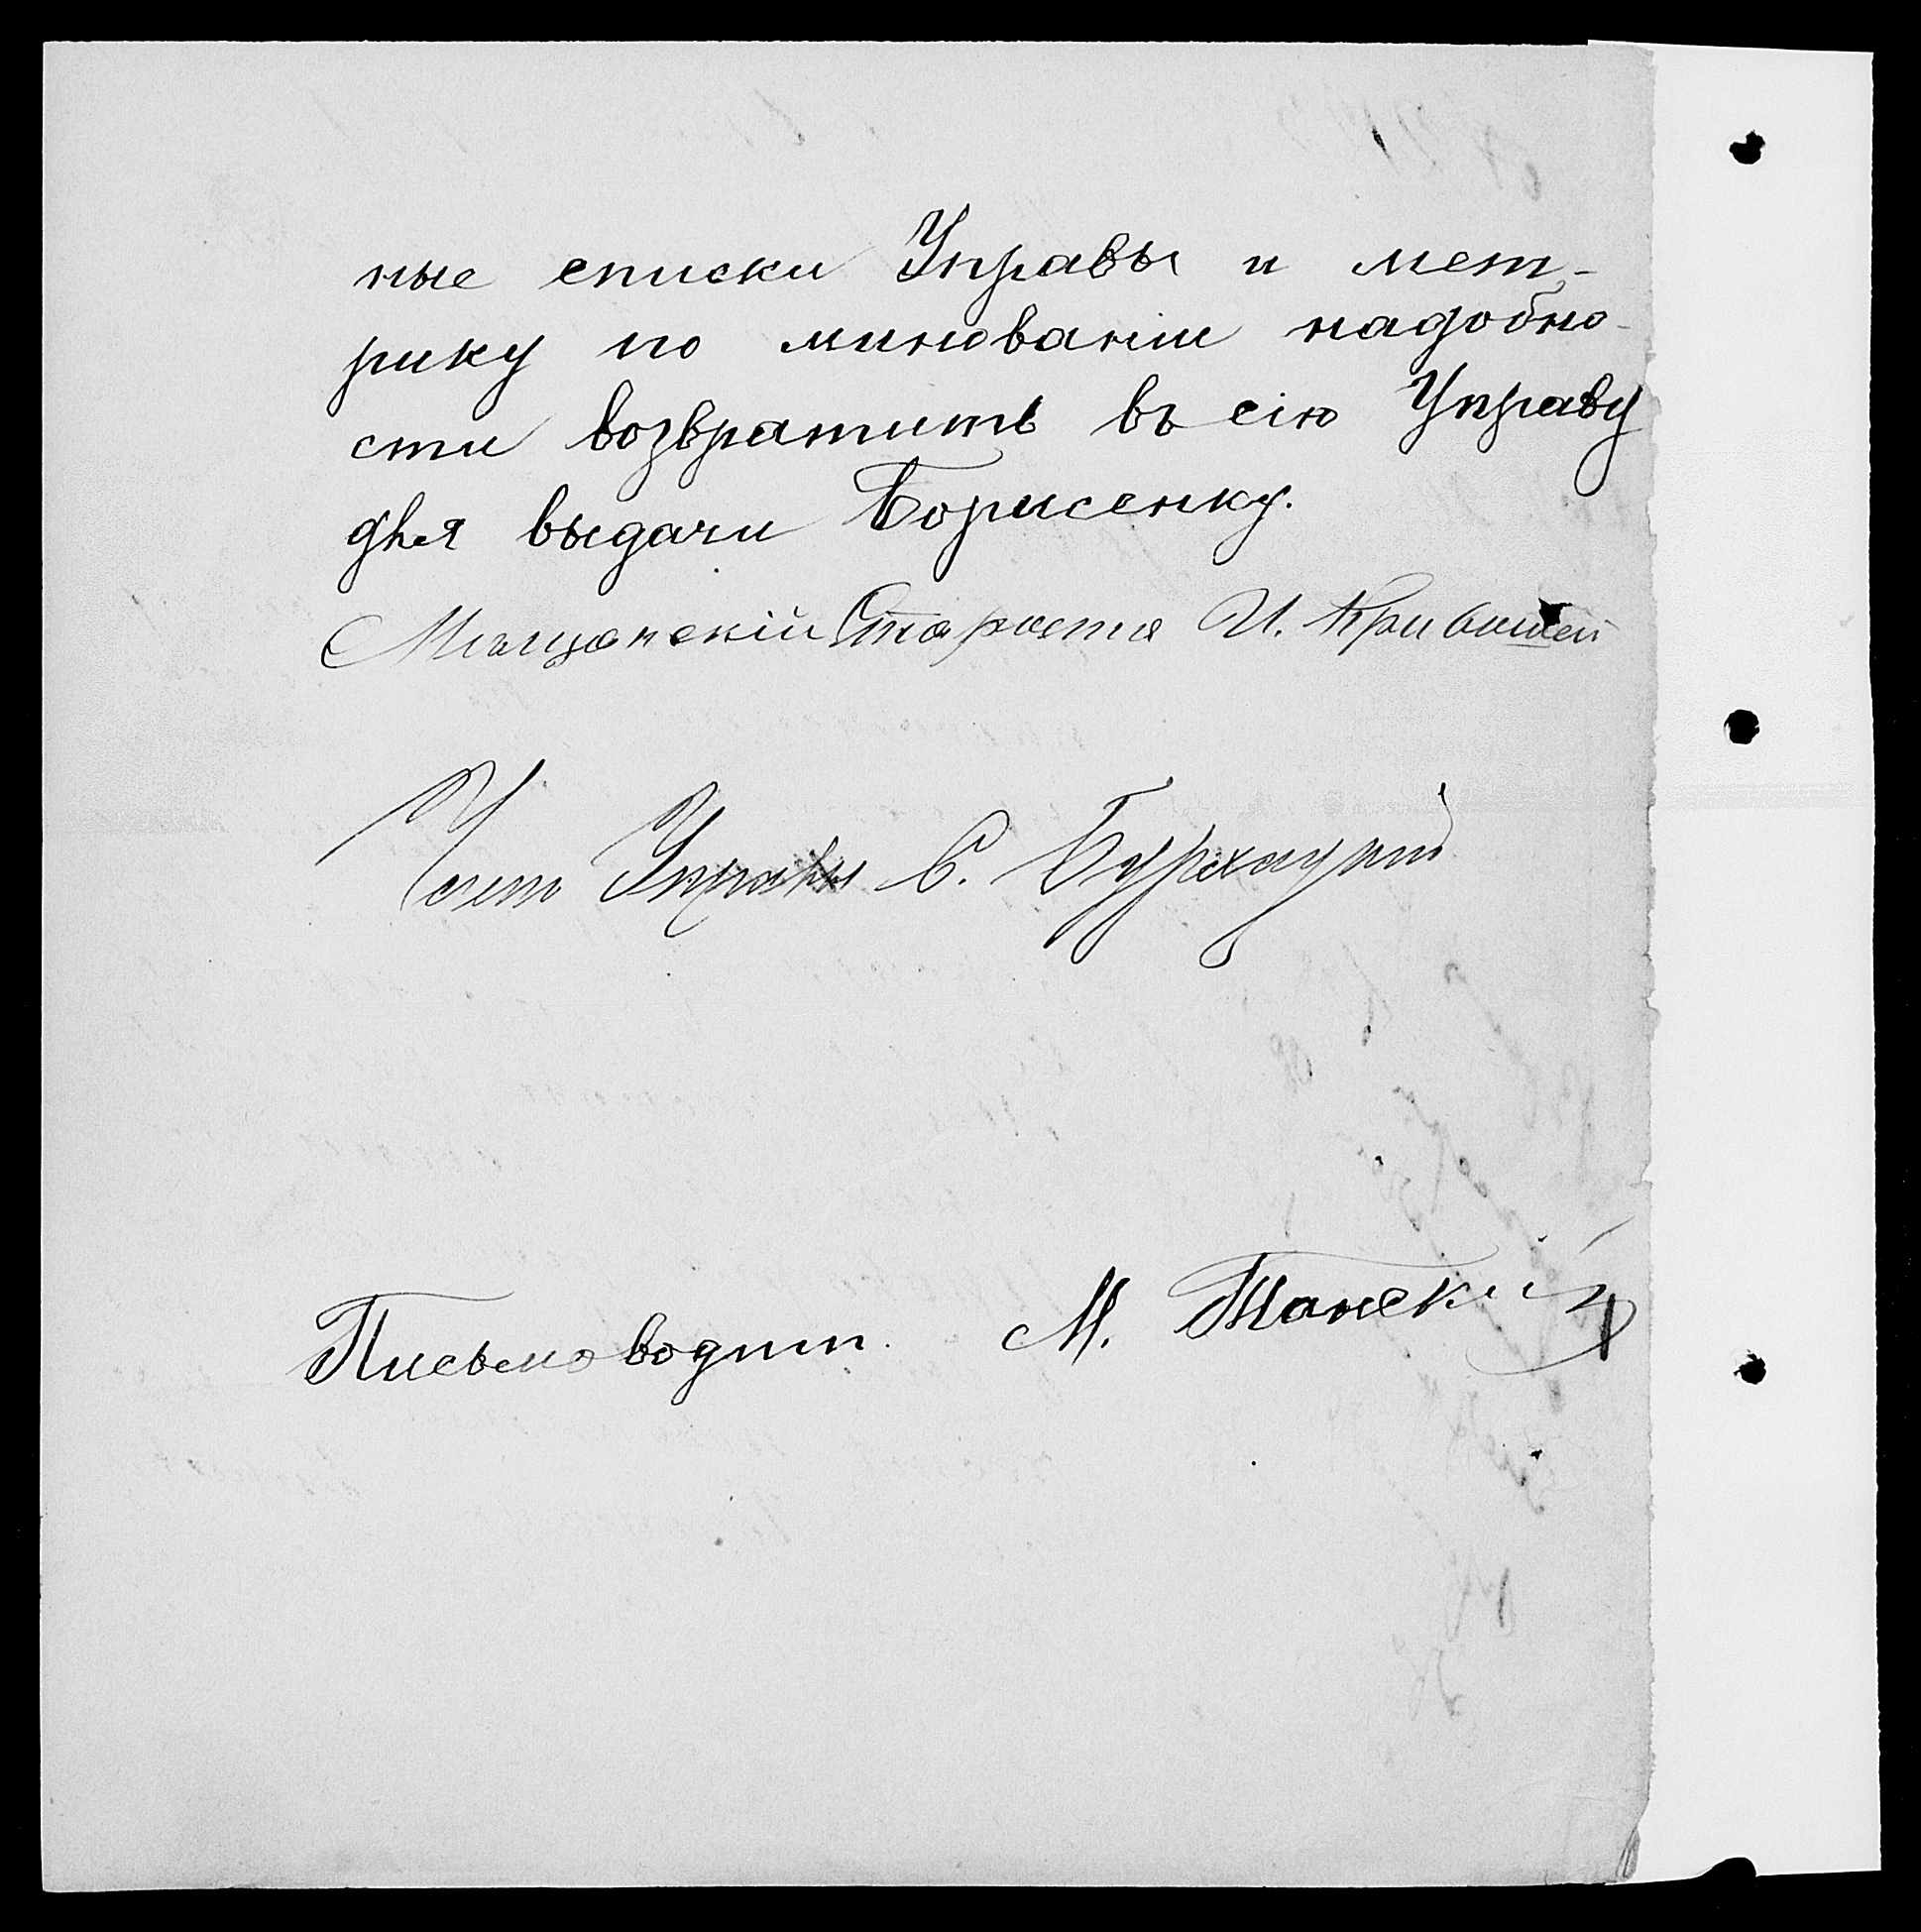 ные списки Управы и мет-
рику по минованіи надобно-
сти возвратить въ сію Управу
для выдачи Борисенку.
Мѣщанскій Староста И. Кривошей
Член Управы С.
Письмоводит. М. Танский